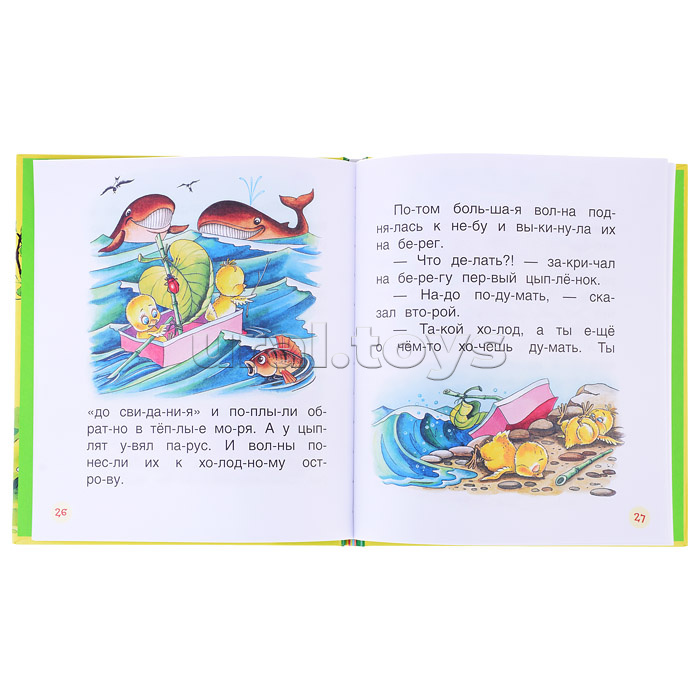 «до сви-да-ни-я» и по-плы-ли об-
рат-но в тёп-лы-е мо-ря. А у цып-
лят у-вял па-рус. И вол-ны по-
нес-ли их к хо-лод-но-му ост-
ро-ву.
26
По-том боль-ша-я вол-на под-
ня-лась к не-бу и вы-ки-ну-ла их
на бе-рег.
— Что де-лать?! — за-кри-чал
на бе-ре-гу пер-вый цып-лё-нок.
— На-до по-ду-мать, — ска-
зал вто-рой.
— Та-кой хо-лод, а ты е-щё
чем-то хо-чешь ду-мать. Ты
27
ural.toys